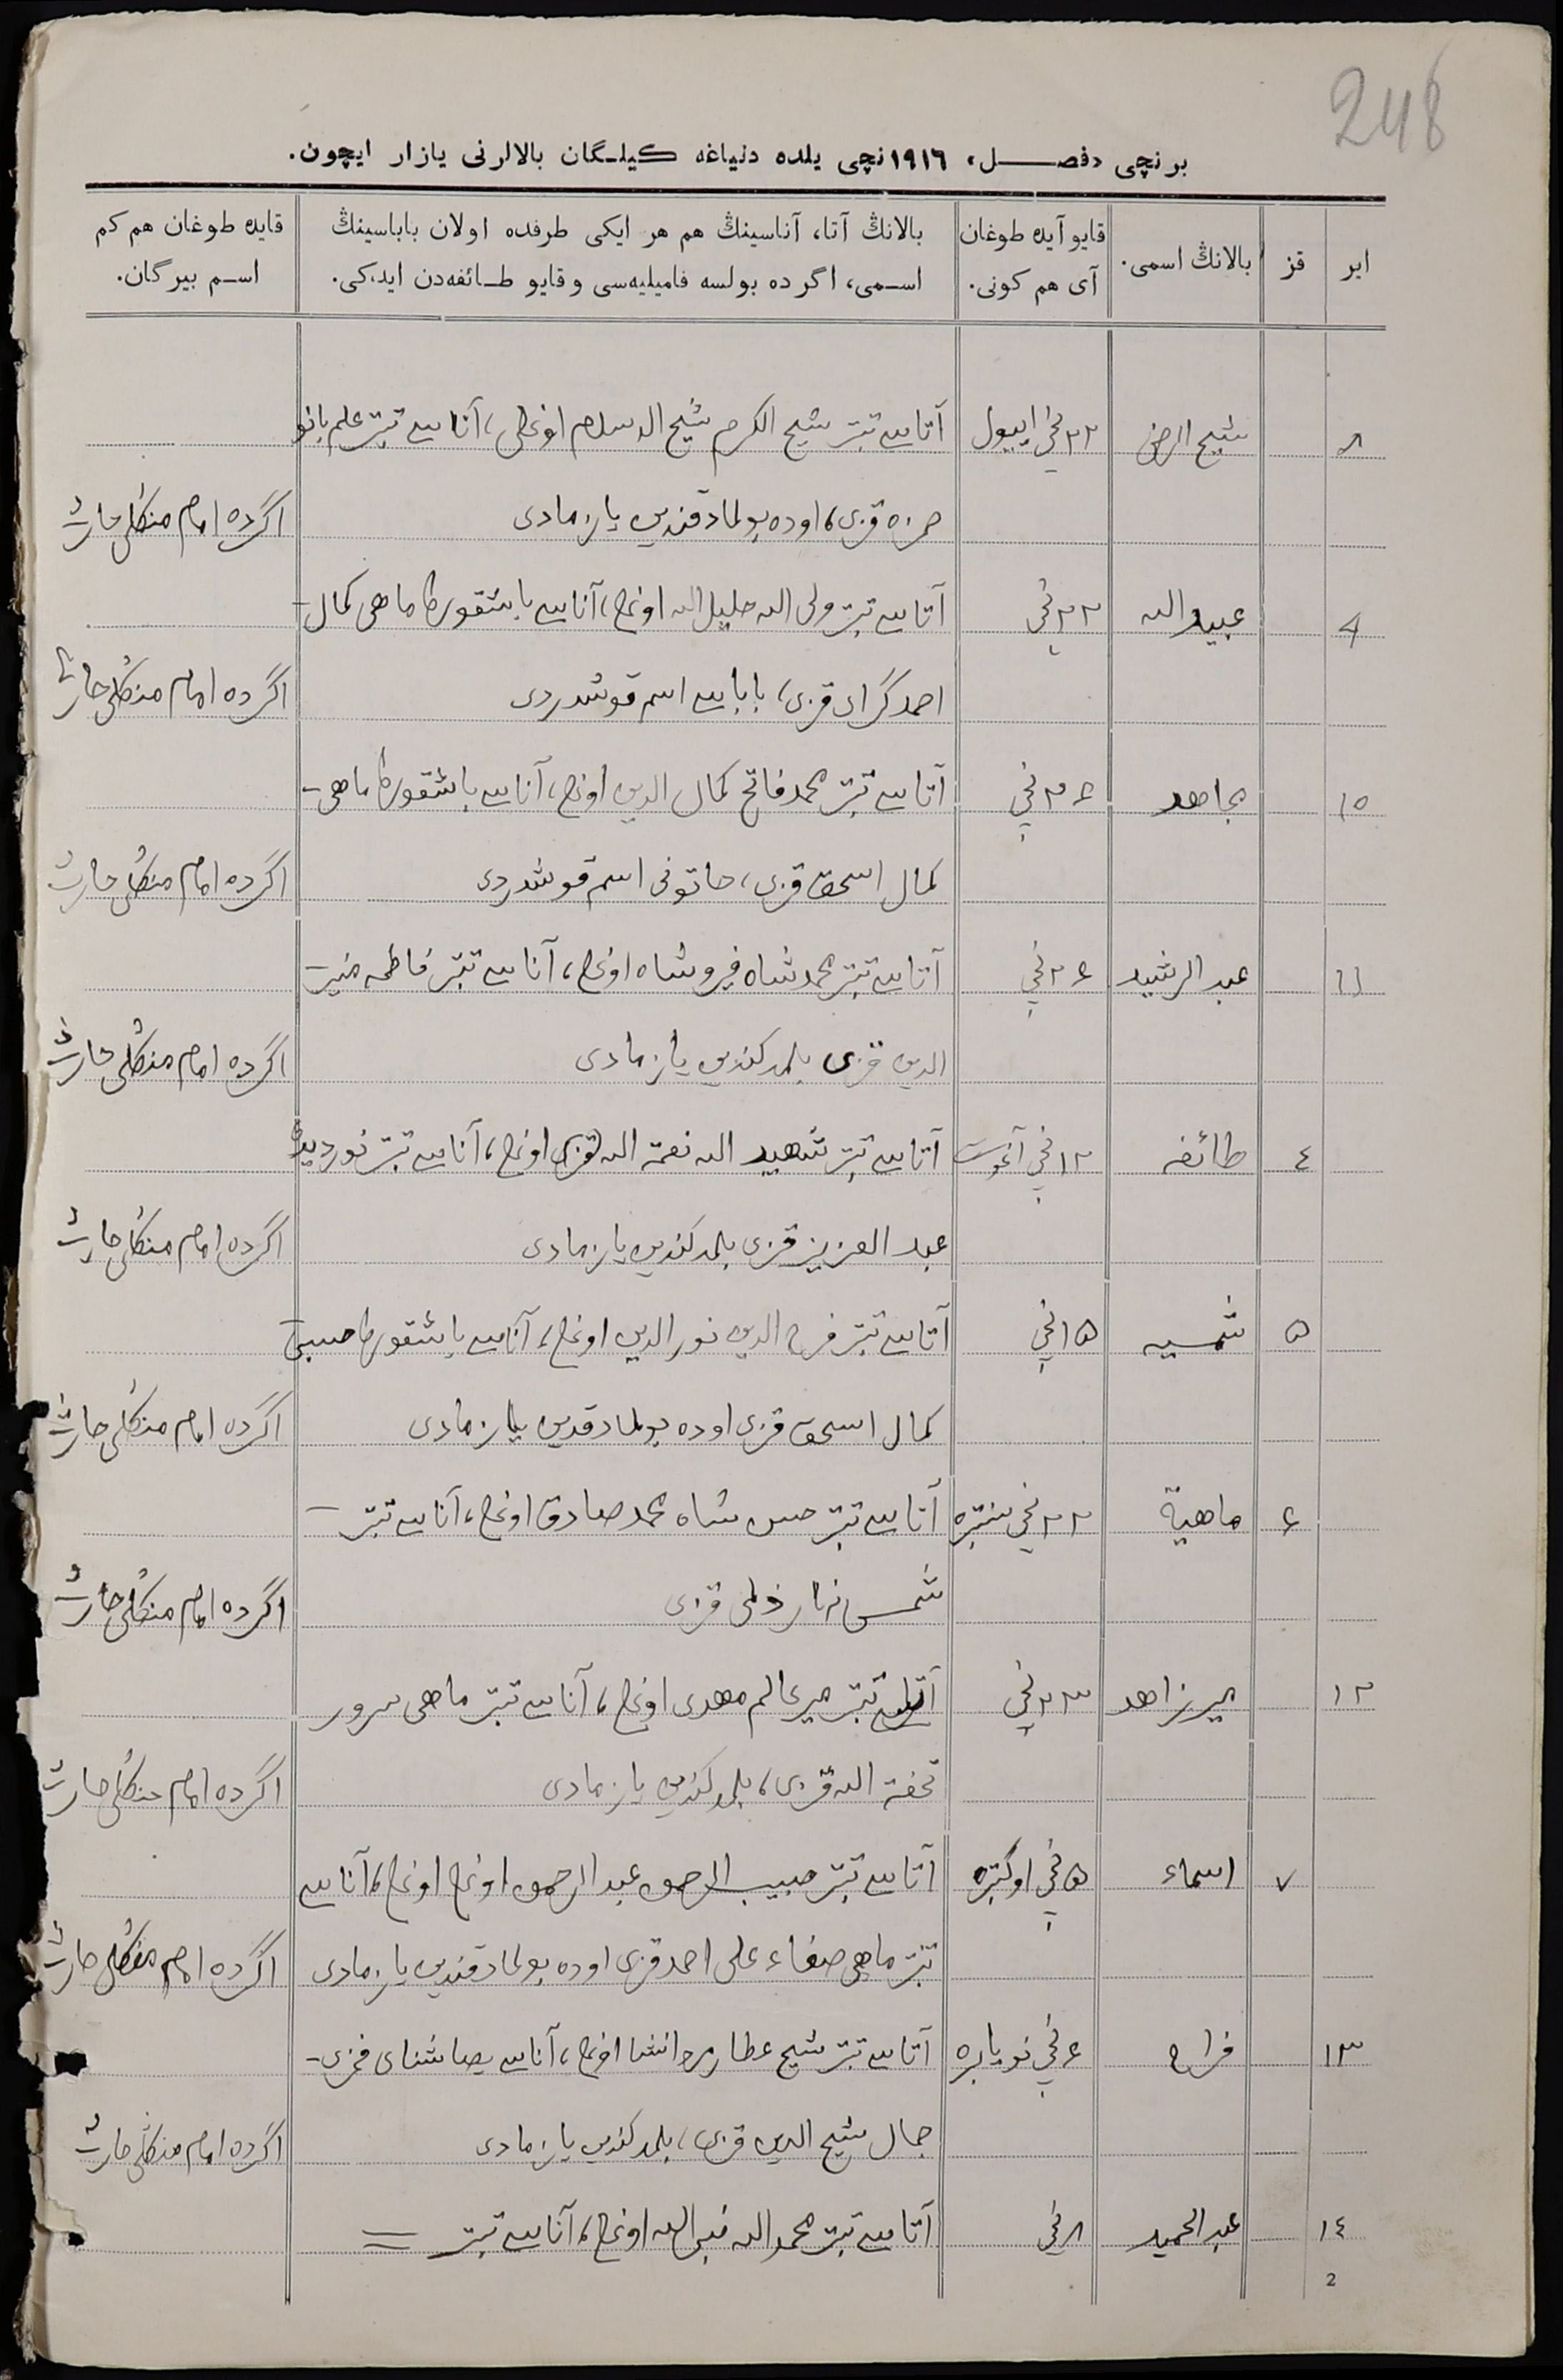 248
برنچی «فصل» ۱۹۱٦نچی یلده دنیاغه کیلـگان بالالرنی یازار ایچون.
ایر
قز
بالانڭ اسمی.
قایو آیده طوغان
آی هم کونی.
بالانڭ آتا، آناسینڭ هم هر ایکی طرفده اولان باباسینڭ
اسـمی، اگر ده بولسه فامیلیه‌سی و قایو طـائفه‌دن ایدکی.
قایده طوغان هم کم
اسـم بیرگان.
٨ شیخ الرضی ٢٢نچی اییول آتاسی تبتر شیخ الکرم شیخ الاسلام اوغلی، آناسی تبتر علم بانو
حمزه قزی، اوده بولمادقندین یازمادی اگرده امام منکلی حارث
٩ عبید الله ٢٢نچی آتاسی تبتر ولی الله خلیل الله اوغلی، آناسی باشقورط ماهی کمال-
احمد گرای قزی، باباسی اسم قوشدردی اگرده امام منکلی حارث
١٠ مجاهد ٢٦نچی آتاسی تبتر محمد فاتح کمال الدین اوغلی، آناسی باشقورط ماهی-
کمال اسحق قزی، خاتونی اسم قوشدردی اگرده امام منکلی حارث
١١ عبد الرشید ٢٦نچی آتاسی تبتر محمد شاه فیروشاه اوغلی، آناسی تبتر فاطمه منیر-
الدین قزی بلمدکندین یازمادی اگرده امام منکلی حارث
٤ طائفه ١٢نچی آغوست آتاسی تبتر شهید الله نعمة الله اوغلی، آناسی تبتر نوردیده
عبد العزیز قزی بلمدکندین یازمادی اگرده امام منکلی حارث
٥ شمسیه ١٥نچی آتاسی تبتر فرح الدین نور الدین اوغلی، آناسی باشقورط حسبی
کمال اسحق قزی اوده بولمادقندین یازمادی اگرده امام منکلی حارث
٦ ماهیة ٢٢نچی سنتبره آتاسی تبتر حسن شاه محمد صادق اوغلی، آناسی تبتر -
شمس نهار ذلمی قزی اگرده امام منکلی حارث
١٢ میرزاهد ٢٣نچی آتاسی تبتر میرعالم مهدی اوغلی، آناسی تبتر ماهی سرور
تحفة الله قزی، بلمدکندین یازمادی اگرده امام منکلی حارث
٧ اسماء ٥نچی اوکتبره آتاسی تبتر حبیب الرحمن عبد الرحمن اوغلی اوغلی، آناسی
تبتر ماهی صفاء علی احمد قزی اوده بولمادقندین یازمادی اگرده امام منکلی حارث
١٣ فراح ٦نچی نویابره آتاسی تبتر شیخ عطار مردانشا اوغلی، آناسی فخری-
جمال شیخ الدین قزی، بلمدکندین یازمادی اگرده امام منکلی حارث
١٤ عبد الحمید ٨نچی آتاسی تبتر محمد الله اوغلی، آناسی تبتر =
2